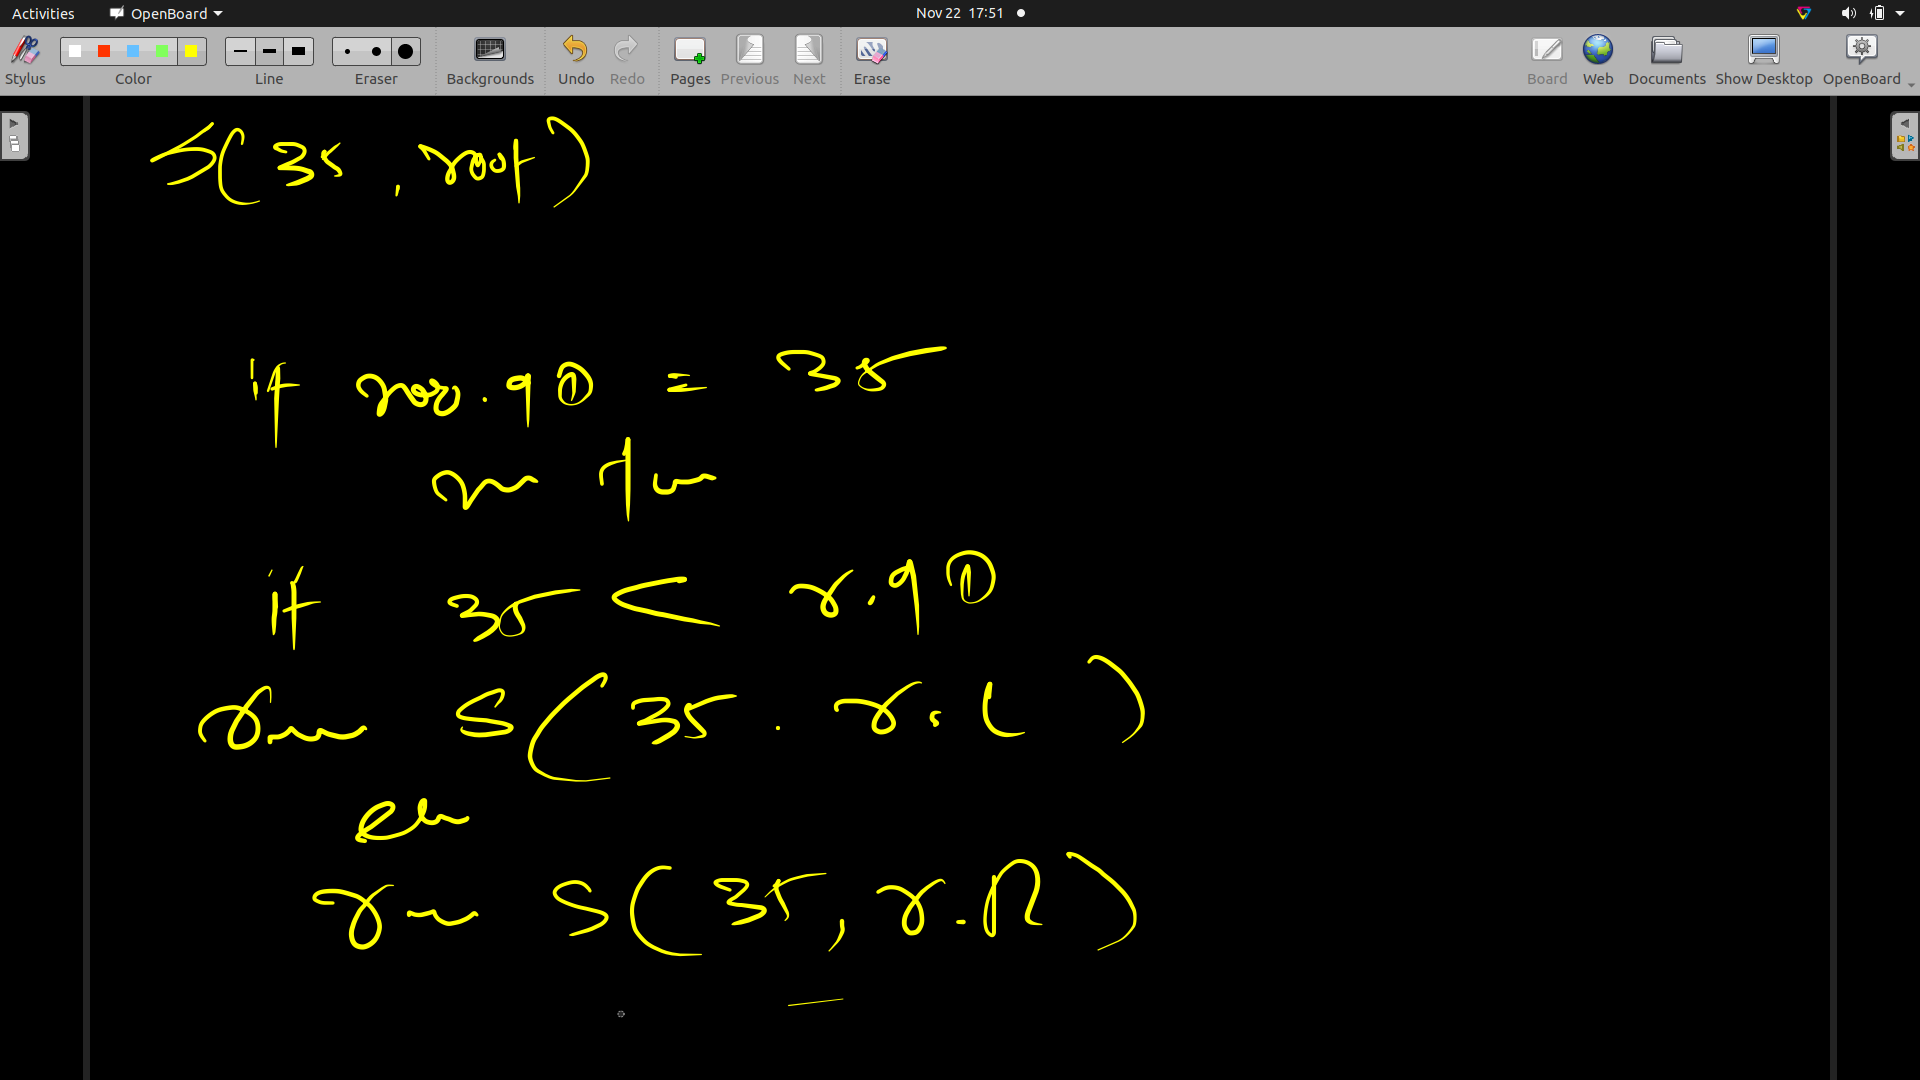 Activities OpenBoard Nov 22 17:51
Stylus Color Line Eraser Backgrounds Undo Redo Pages Previous Next Erase Board Web Documents Show Desktop OpenBoard
S(35, root)
if . 9 ① = 35
if 35 < r.9 ①
S(35 . r.L)
S(35, r.R)